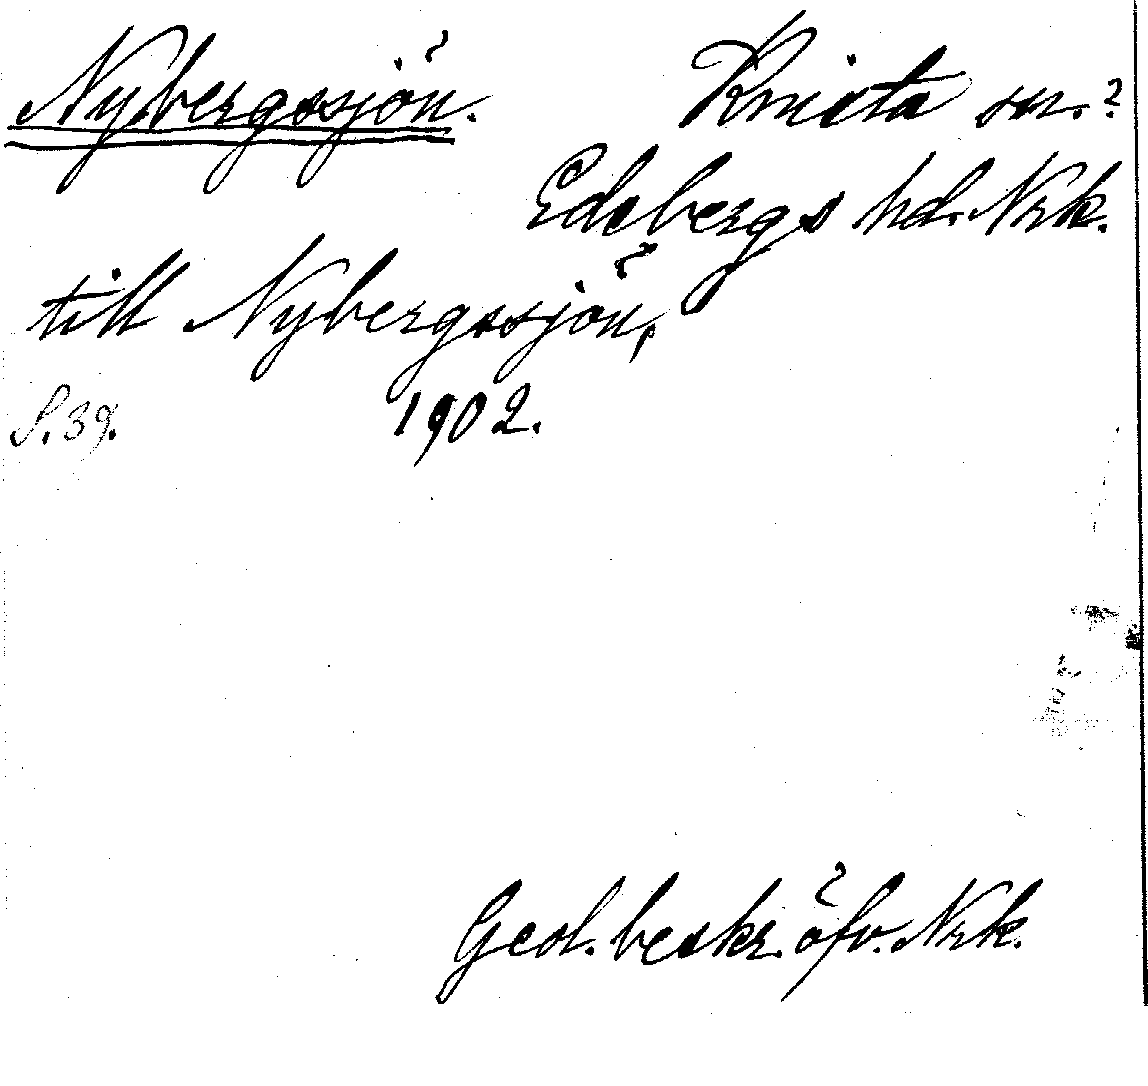 Nybergssjön. Knista sn.?
Edsbergs hd. Nrk.
till Nybergssjön,
S. 39. 1902.
Geol. beskr. öfv. Nrk.